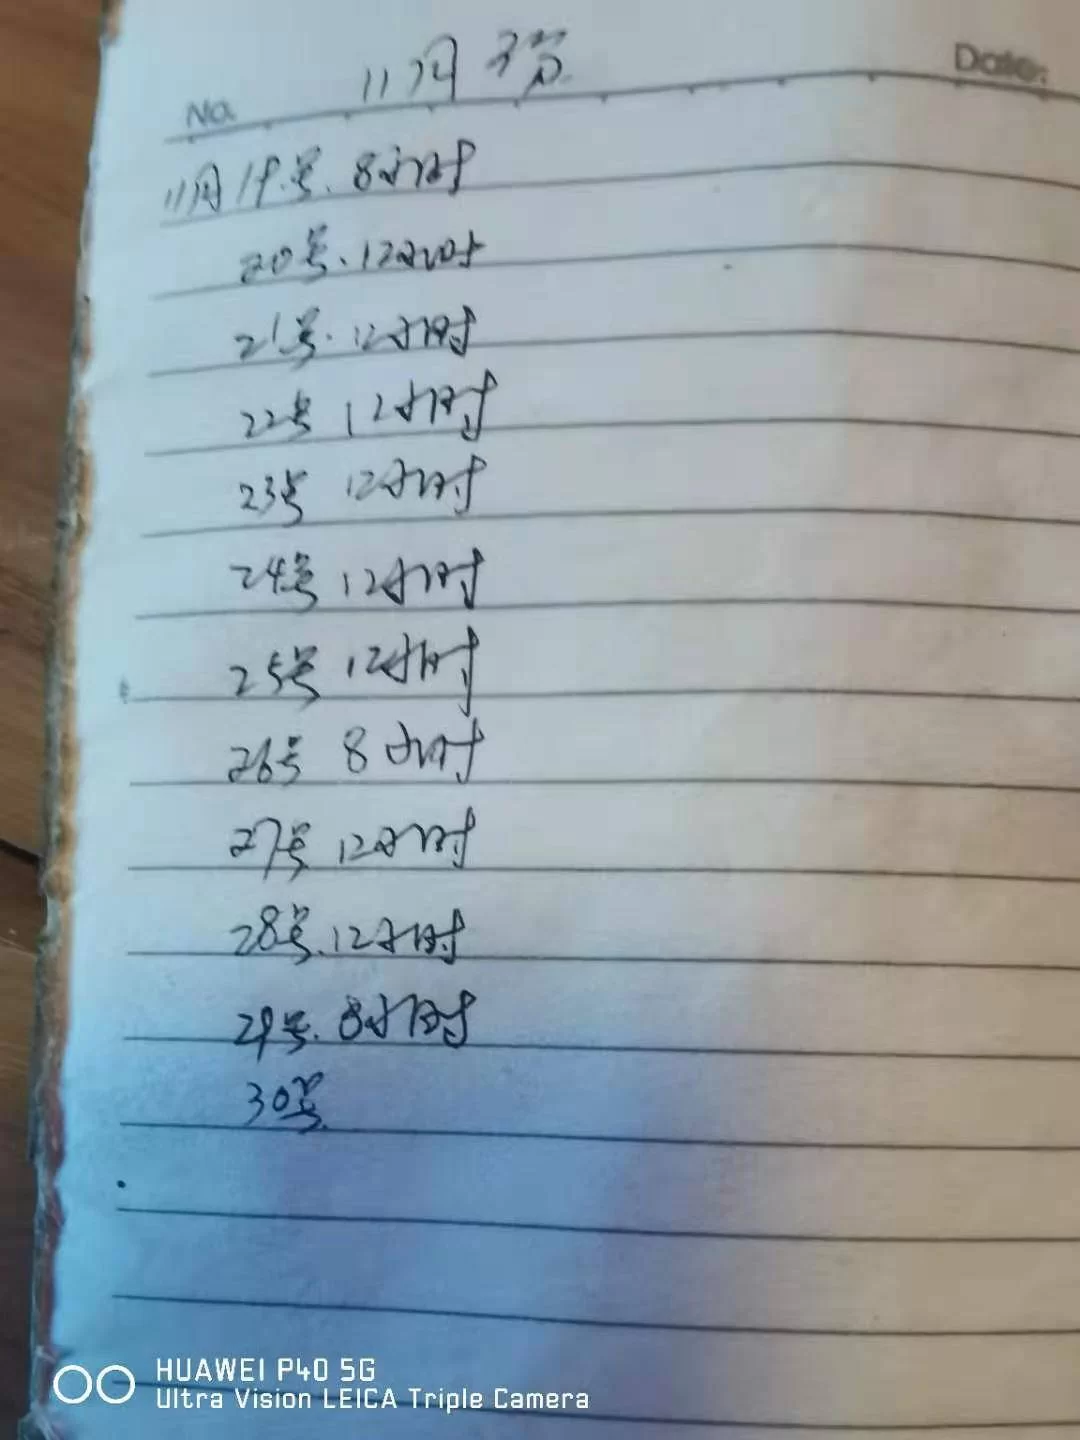 11月
No.
Date:
11月19号. 8小时
20号. 12小时
21号. 12小时
22号 12小时
23号 12小时
24号 12小时
25号 12小时
26号 8小时
27号 12小时
28号. 12小时
29号. 8小时
30号
HUAWEI P40 5G
Ultra Vision LEICA Triple Camera